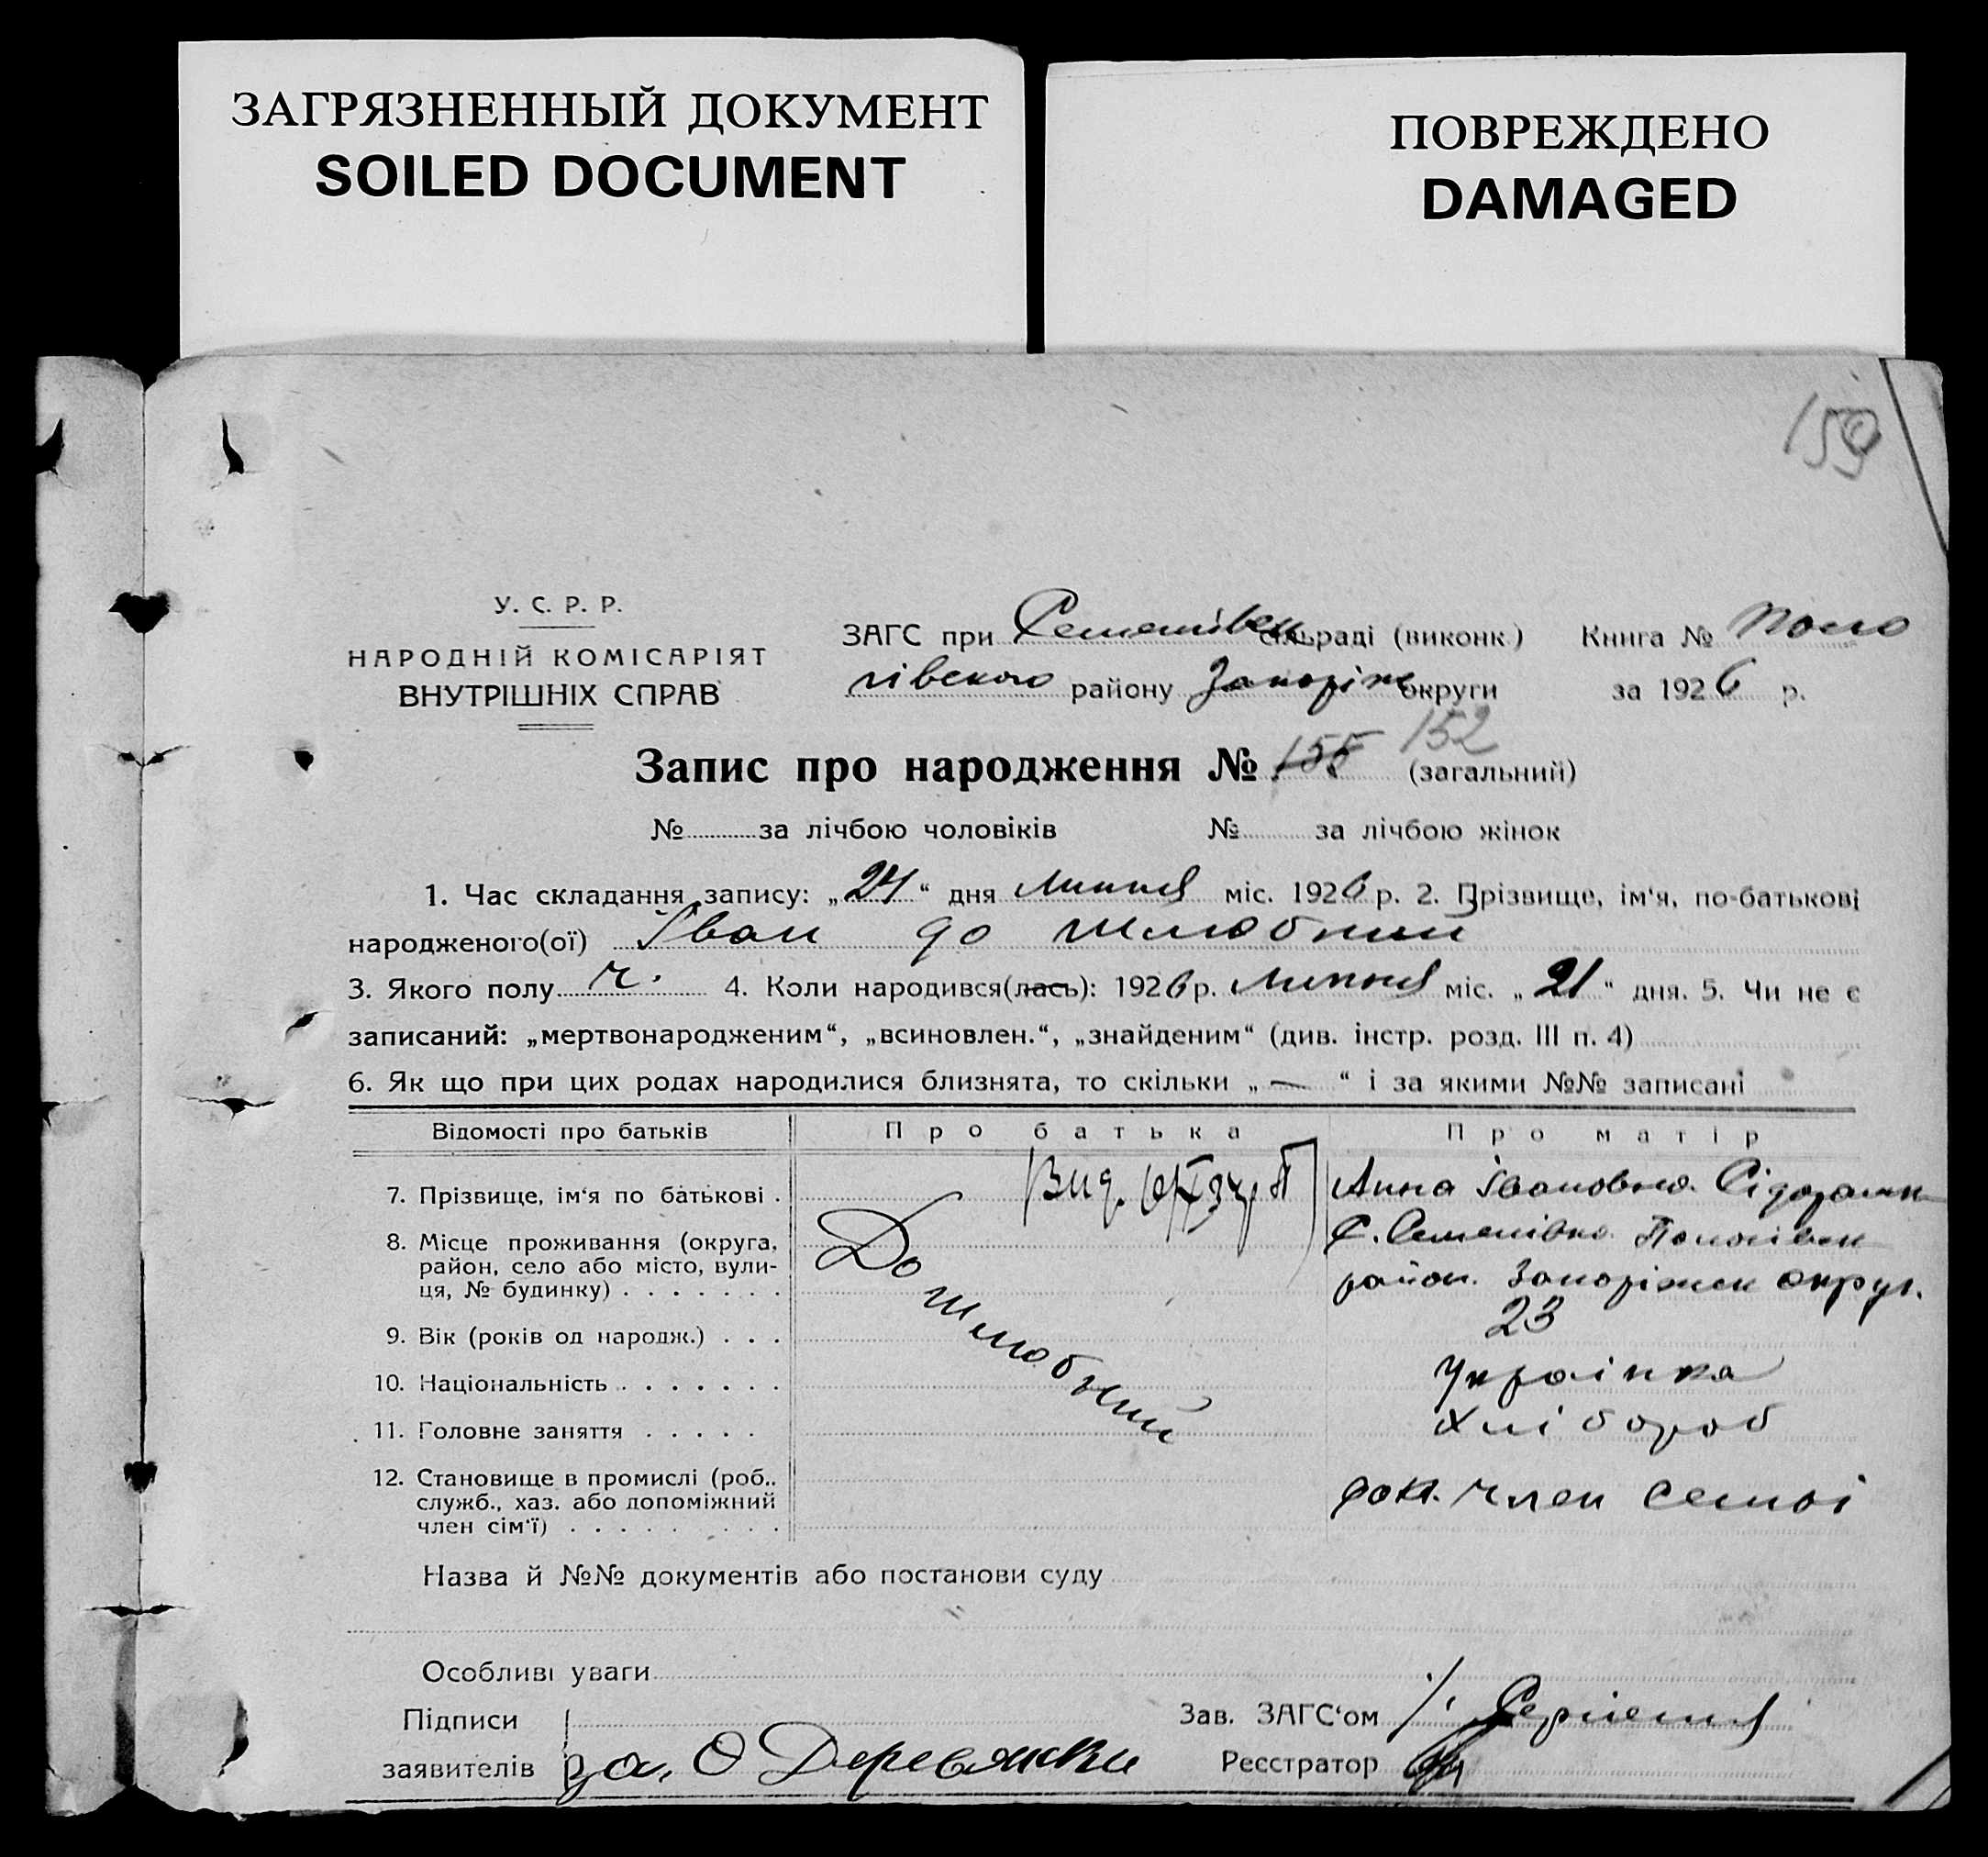 ЗАГРЯЗНЕННЫЙ ДОКУМЕНТ
SOILED DOCUMENT
ПОВРЕЖДЕНО
DAMAGED
159
У. С. Р. Р.
НАРОДНІЙ КОМІСАРІЯТ
ВНУТРІШНІХ СПРАВ
ЗАГС при Семенівск сільраді (виконк.) Книга № Поло
гівского району Запоріж округи за 1926 р.
152
Запис про народження № 155 (загальний)
№ за лічбою чоловіків № за лічбою жінок
1. Час складання запису: „24“ дня Липня міс. 1926 р. 2. Прізвище, ім‘я, по-батькові
народженого(ої) Іван до шлюбний
3. Якого полу ч. 4. Коли народився(лась): 1926 р. Липня міс. „21“ дня. 5. Чи не є
записаний: „мертвонародженим“, „всиновлен.“, „знайденим“ (див. інстр. розд. III п. 4)
6. Як що при цих родах народилися близнята, то скільки „—“ і за якими №№ записані
Відомості про батьків Про батька Про матір
7. Прізвище, ім‘я по батькові . Вид. Анна Івановна
8. Місце проживання (округа, район, село або місто, вулиця, № будинку) . . . . . . .
С. Семенівка Пологівск
район. Запоріжск округ.
До шлюбний
9. Вік (років од народж.) . . . 23
10. Національність . . . . . . . Українка
11. Головне заняття . . . . . Хлібороб
12. Становище в промислі (роб.. служб., хаз. або допоміжний член сім‘ї) . . . . . . . . .
доп. член семьі
Назва й №№ документів або постанови суду
Особливі уваги
Підписи Зав. ЗАГС‘ом
заявителів за. О Деревянки Реєстратор